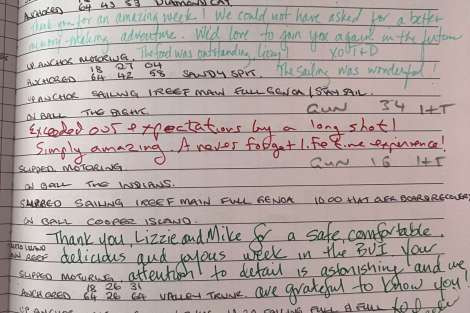 ANCHORED 64 43 53 DIAMOND CAY
Thank you for an amazing week! We could not have asked for a better
memory-making adventure. We'd love to again in the future
UP ANCHOR MOTORING. The food was outstanding, Lizzy! XO T+D
18 27 04
ANCHORED 64 42 58 SANDY SPIT. The sailing was wonderful!
UP ANCHOR SAILING 1 REEF MAIN FULL GENOA
ON BALL THE BIGHT. GUN 34 1+T
Exceeded our expectations by a long shot!
Simply amazing. A never forget lifetime experience!
SLIPPED MOTORING. GUN 16 1+T
ON BALL THE INDIANS.
SLIPPED SAILING 1 REEF MAIN FULL GENOA 10.00 HAT OVERBOARD RECOVERED
ON BALL COOPER ISLAND.
Thank you, Lizzie and Mike for a safe, comfortable,
delicious and joyous week in the BVI. Your
SLIPPED MOTORING. attention to detail is astonishing and we
18 26 31
ANCHORED 64 26 64 VALLEY TRUNK. are grateful to know you!
UP ANCHOR SAILING FULL